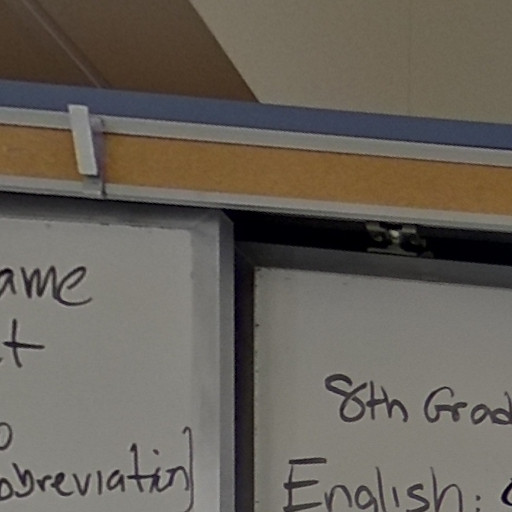 ame
t
o
bbreviatin]
8th Grad
English: